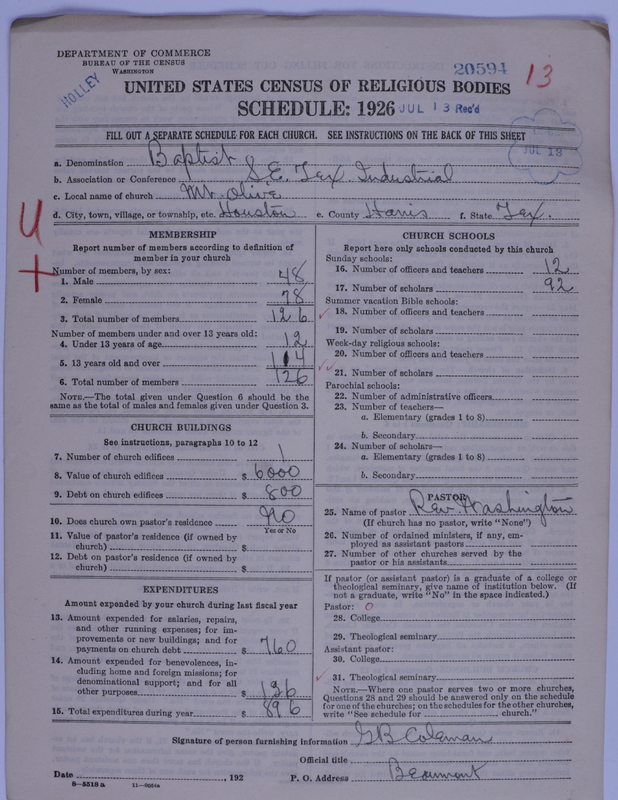 DEPARTMENT OF COMMERCE
BUREAU OF THE CENSUS
WASHINGTON
HOLLEY
20594
13
UNITED STATES CENSUS OF RELIGIOUS BODIES
SCHEDULE: 1926
JUL 13 Rec'd
FILL OUT A SEPARATE SCHEDULE FOR EACH CHURCH. SEE INSTRUCTIONS ON THE BACK OF THIS SHEET
JUL 13
a. Denomination Baptist
b. Association or Conference S.E. Tex Industrial
c. Local name of church Mt. Olive
d. City, town, village, or township, etc. Houston e. County Harris f. State Tex.
4
MEMBERSHIP
Report number of members according to definition of
member in your church
Number of members, by sex:
1. Male 48
2. Female 78
3. Total number of members 126
Number of members under and over 13 years old:
4. Under 13 years of age 12
5. 13 years old and over 114
6. Total number of members 126
NOTE.—The total given under Question 6 should be the
same as the total of males and females given under Question 3.
CHURCH BUILDINGS
See instructions, paragraphs 10 to 12
7. Number of church edifices 1
8. Value of church edifices $ 6000
9. Debt on church edifices $ 800
10. Does church own pastor's residence No
Yes or No
11. Value of pastor's residence (if owned by
church) $
12. Debt on pastor's residence (if owned by
church) $
EXPENDITURES
Amount expended by your church during last fiscal year
13. Amount expended for salaries, repairs,
and other running expenses; for im-
provements or new buildings; and for
payments on church debt $ 760
14. Amount expended for benevolences, in-
cluding home and foreign missions; for
denominational support; and for all
other purposes $ 136
15. Total expenditures during year $ 896
CHURCH SCHOOLS
Report here only schools conducted by this church
Sunday schools:
16. Number of officers and teachers 12
17. Number of scholars 92
Summer vacation Bible schools:
18. Number of officers and teachers
19. Number of scholars
Week-day religious schools:
20. Number of officers and teachers
21. Number of scholars
Parochial schools:
22. Number of administrative officers
23. Number of teachers—
a. Elementary (grades 1 to 8)
b. Secondary
24. Number of scholars—
a. Elementary (grades 1 to 8)
b. Secondary
PASTOR
25. Name of pastor Rev. Washington
(If church has no pastor, write "None")
26. Number of ordained ministers, if any, em-
ployed as assistant pastors
27. Number of other churches served by the
pastor or his assistants
If pastor (or assistant pastor) is a graduate of a college or
theological seminary, give name of institution below. (If
not a graduate, write "No" in the space indicated.)
Pastor: 0
28. College
29. Theological seminary
Assistant pastor:
30. College
31. Theological seminary
NOTE.—Where one pastor serves two or more churches,
Questions 28 and 29 should be answered only on the schedule
for one of the churches; on the schedules for the other churches,
write "See schedule for church."
Signature of person furnishing information G B Coleman
Official title
Date , 192 P. O. Address Beaumont
8—5518a 11—9054a